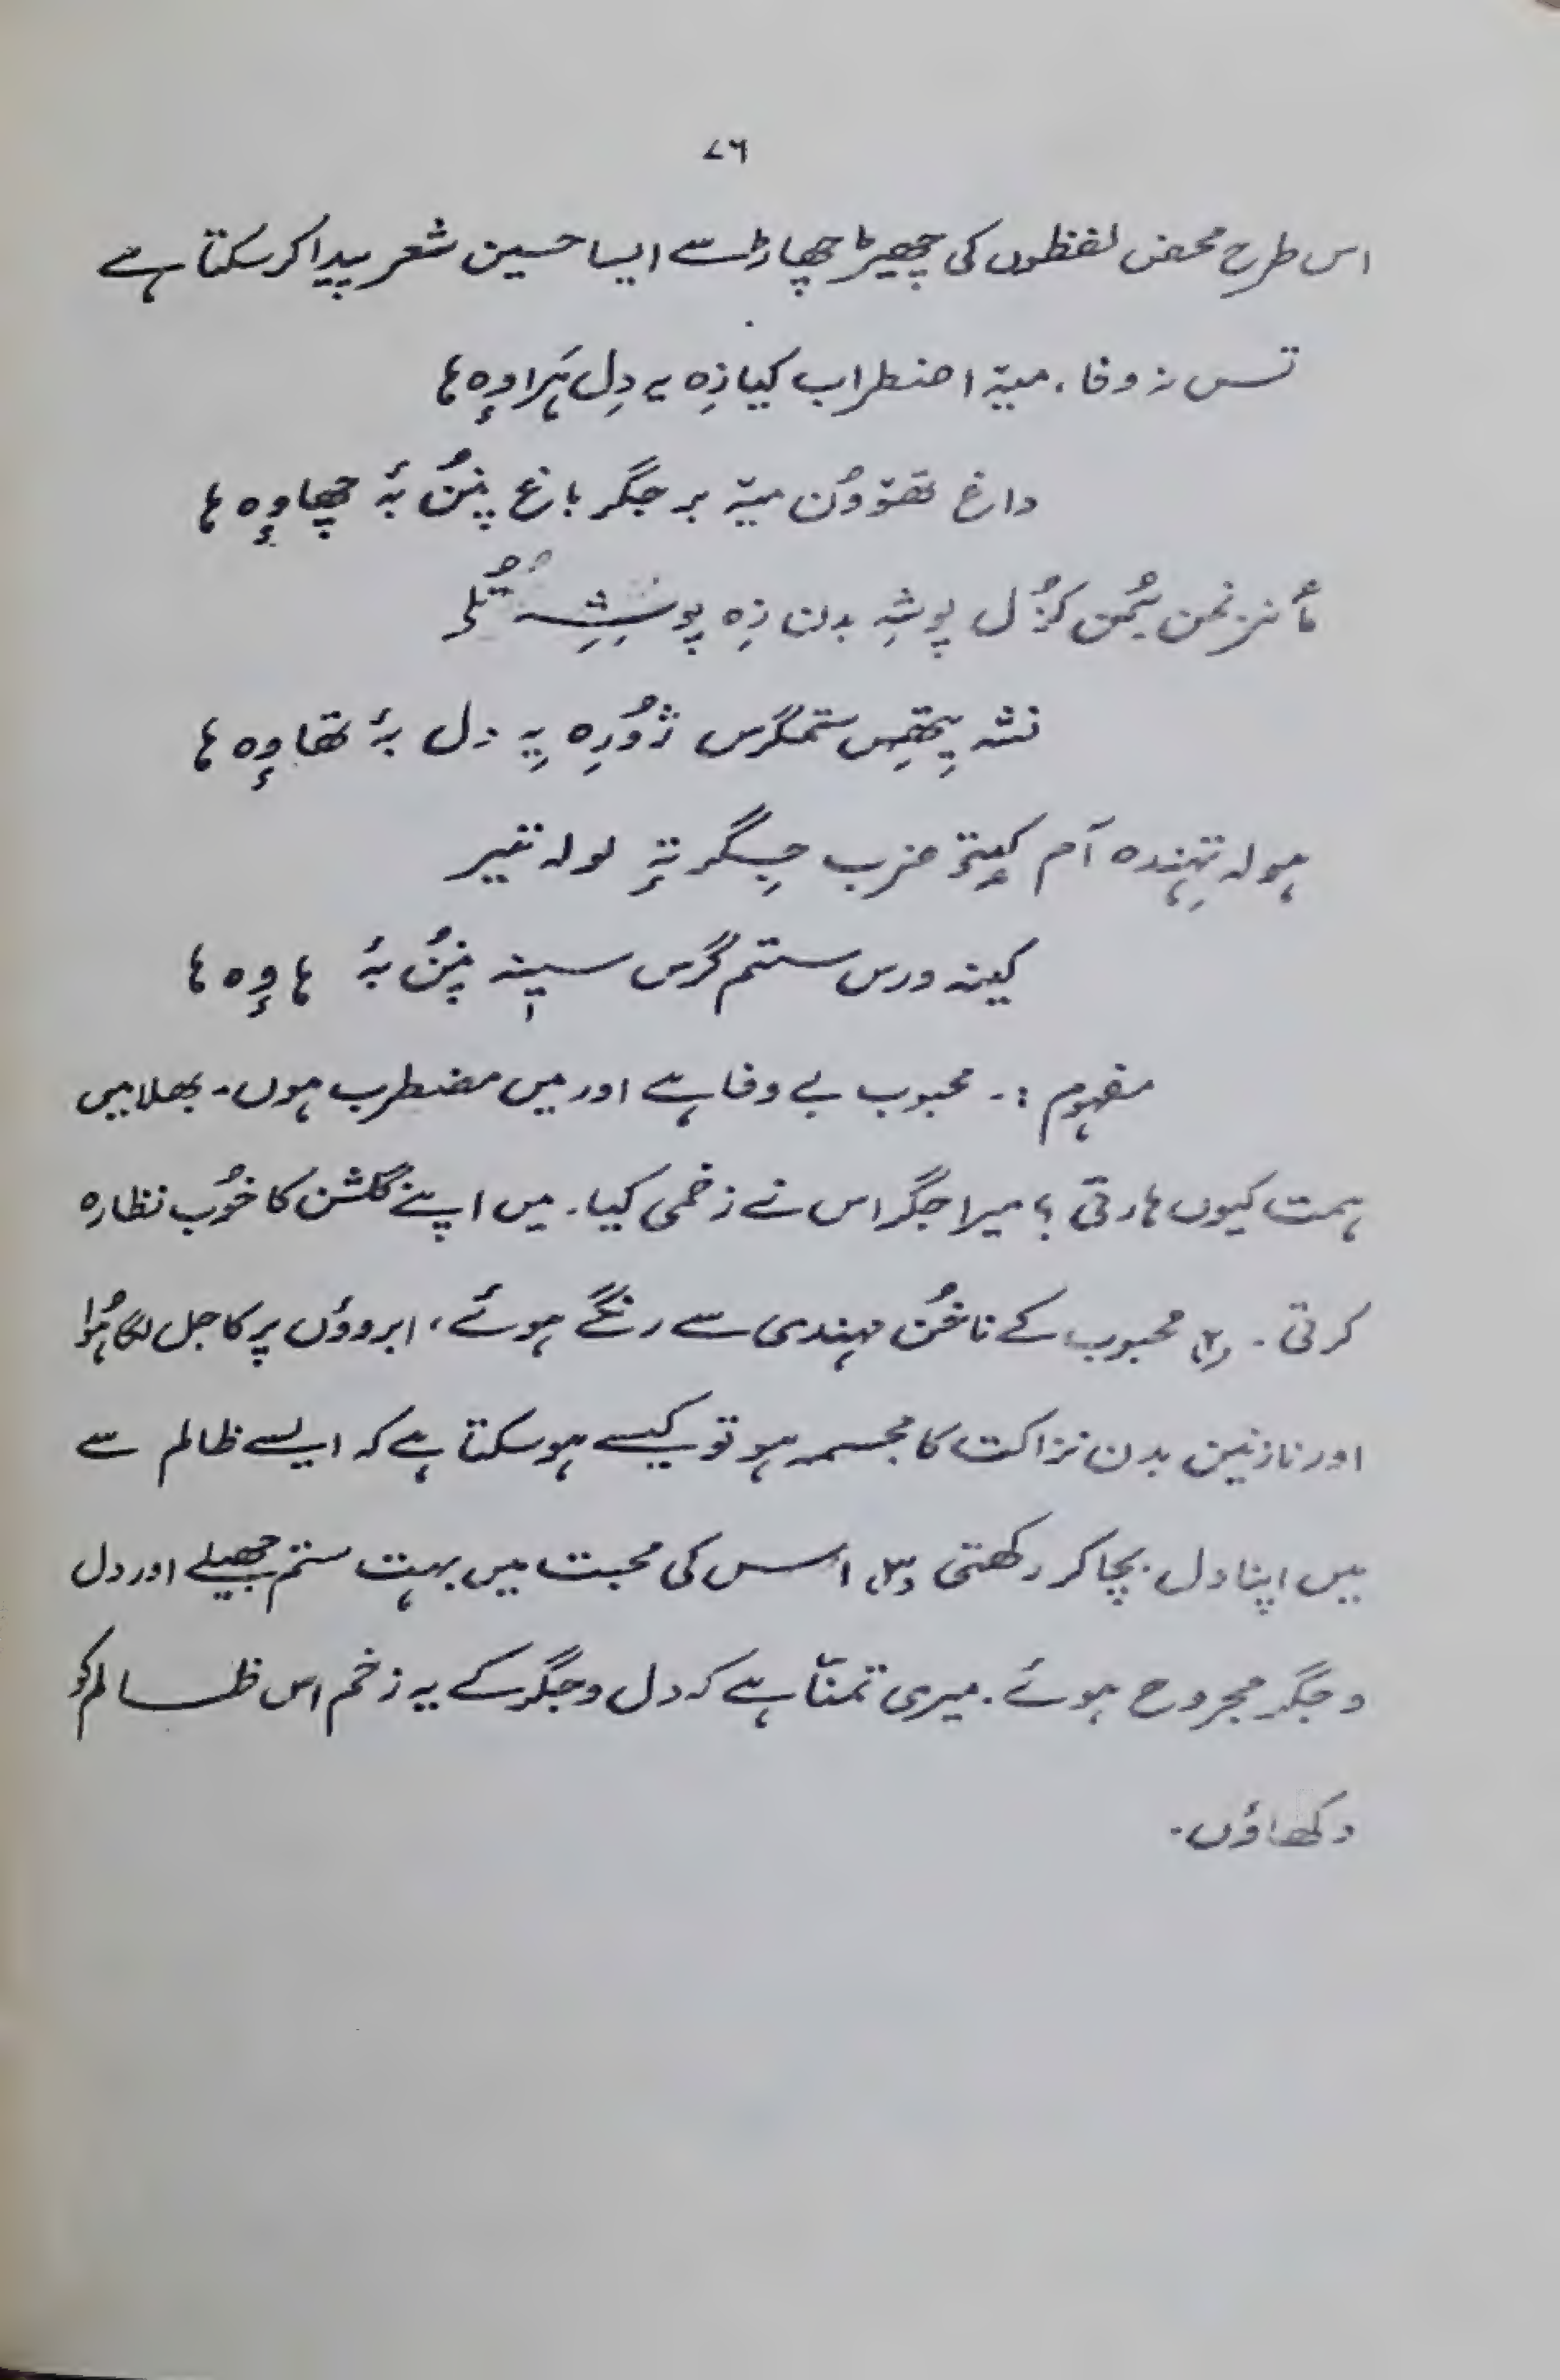 ۷۶
اس طرح محض لفظوں کی چھیڑ چھاڑ سے ایسا حسین شعر پیدا کر سکتا ہے
تس نہ وفا، میۃ اضطراب کیا زِہ یہ دِل ہَراوٕہ ہا
داغ تھوٚوُن میۃ بر جگر باغ پننُ بۂ چھاوٕہ ہا
مأنز نمن سُرمن کزُل پوشہِ بدن زِہ
نشہِ یِتھِس ستمگرس ژوُرِہ یہِ دل بۂ تھاوٕہ ہا
ہولہ تہِندہ آم کیٕتۍ ضرب جِگر تہٕ لولہ تیر
کینہ ورس ستم گرس سیٖنہ پننُ بۂ ہاوٕہ ہا
مفہوم :۔ محبوب بے وفا ہے اور میں مضطرب ہوں۔ بھلا میں
ہمت کیوں ہارتی ؟ میرا جگر اس نے زخمی کیا۔ میں اپنے گلشن کا خوُب نظارہ
کرتی ۔ (۲) محبوب کے ناخُن مہندی سے رنگے ہوئے، ابروؤں پر کاجل لگا ہُوا
اور نازنین بدن نزاکت کا مجسمہ ہو تو کیسے ہو سکتا ہے کہ ایسے ظالم سے
میں اپنا دل بچا کر رکھتی (۳) اُس کی محبت میں بہت ستم جھیلے اور دل
و جگر مجروح ہوئے۔ میری تمنّا ہے کہ دل و جگر کے یہ زخم اس ظالم کو
دکھاؤں۔